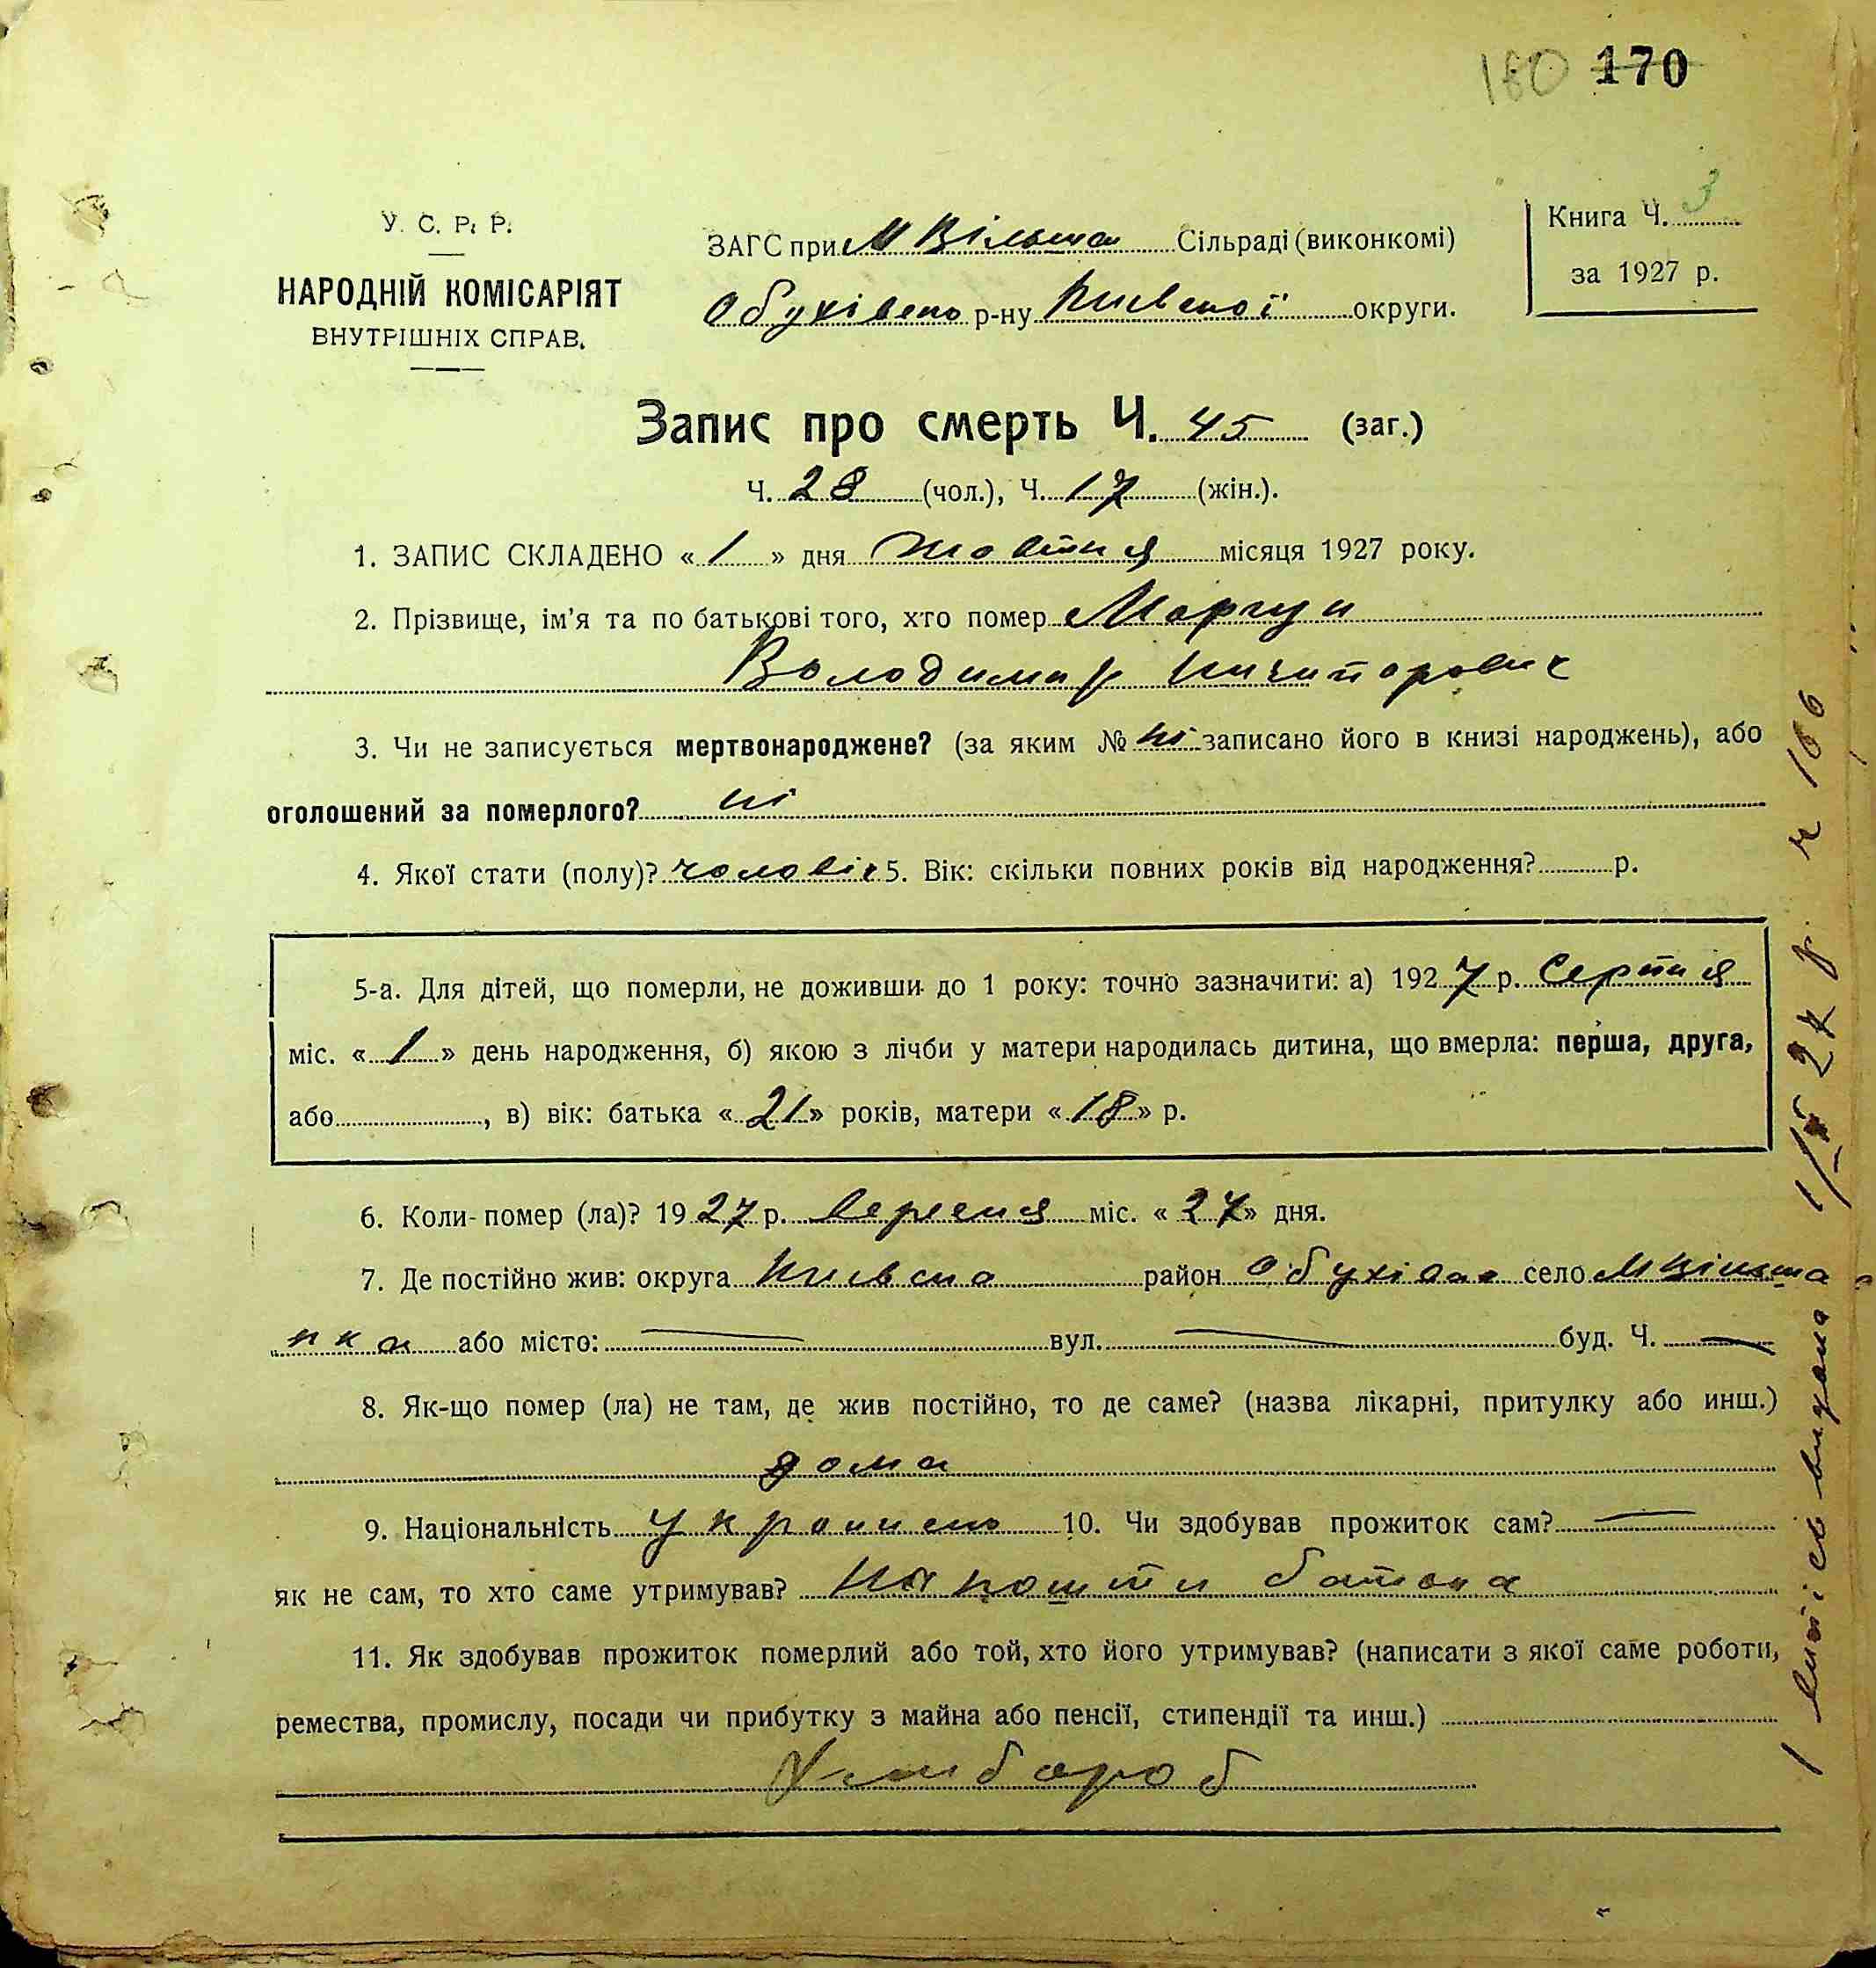 180 170
У. С. Р. Р.
НАРОДНІЙ КОМІСАРІЯТ
ВНУТРІШНІХ СПРАВ.
ЗАГС при М Вільша Сільраді (виконкомі)
Обухівсько р-ну Київської округи.
Книга Ч. 3
за 1927 р.
Запис про смерть Ч. 45 (заг.)
Ч. 28 (чол.), Ч. 17 (жін.).
1. ЗАПИС СКЛАДЕНО « 1 » дня Жовтня місяця 1927 року.
2. Прізвище, ім'я та по батькові того, хто помер Моргун
Володимир Ничипорович
3. Чи не записується мертвонароджене? (за яким № ні записано його в книзі народжень), або
оголошений за померлого? ні
4. Якої стати (полу)? чоловік 5. Вік: скільки повних років від народження? р.
5-а. Для дітей, що померли, не доживши до 1 року: точно зазначити: а) 1927 р. Серпня
міс. « 1 » день народження, б) якою з лічби у матери народилась дитина, що вмерла: перша, друга,
або , в) вік: батька « 21 » років, матери « 18 » р.
6. Коли помер (ла)? 1927 р. вересня міс. « 27 » дня.
7. Де постійно жив: округа Київська район Обухівськ село М Вільша
нка або місто: — вул. — буд. Ч. —
8. Як-що помер (ла) не там, де жив постійно, то де саме? (назва лікарні, притулку або инш.)
дома
9. Національність Українець 10. Чи здобував прожиток сам? —
як не сам, то хто саме утримував? На кошти батька
11. Як здобував прожиток померлий або той, хто його утримував? (написати з якої саме роботи,
ремества, промислу, посади чи прибутку з майна або пенсії, стипендії та инш.)
Хлибороб
витісь видана 27 р. 166